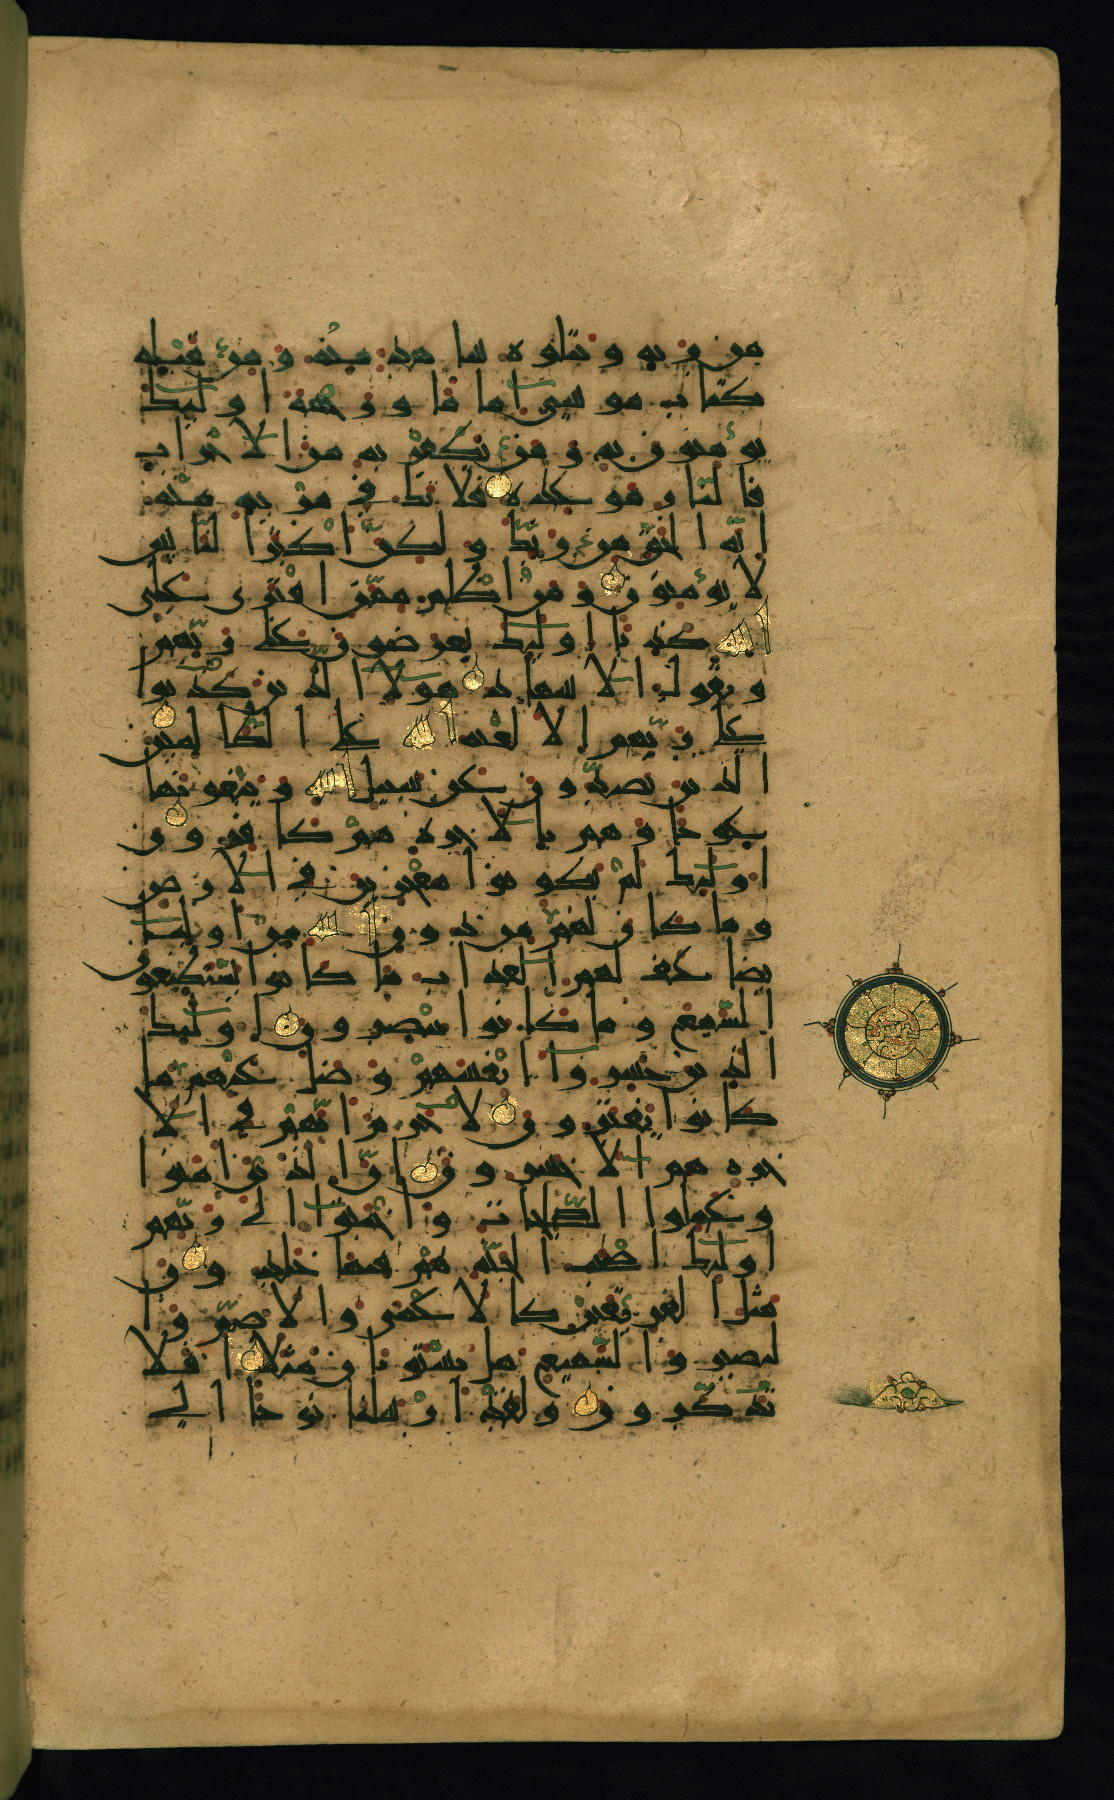 من ربه ويتلوه شاهد منه ومن قبله
كتاب موسى اماما ورحمة اولئك
يؤمنون به ومن يكفر به من الاحزاب
فالنار موعده فلا تك في مرية منه
انه الحق من ربك ولكن اكثر الناس
لا يؤمنون ومن اظلم ممن افترى على
الله كذبا اولئك يعرضون على ربهم
ويقول الاشهاد هولا الذين كذبوا
على ربهم الا لعنة الله على الظالمين
الذين يصدون عن سبيل الله ويبغونها
عوجا وهم بالاخرة هم كافرون
اولئك لم يكونوا معجزين في الارض
وما كان لهم من دون الله من اوليا
يضاعف لهم العذاب ما كانوا يستطيعون
السمع وما كانوا يبصرون اولئك
الذين خسروا انفسهم وضل عنهم ما
كانوا يفترون لا جرم انهم في الا
خرة هم الاخسرون ان الذين امنوا
وعملوا الصالحات واخبتوا الى ربهم
اولئك اصحاب الجنة هم فيها خالدون
مثل الفريقين كالاعمى والاصم وا
لبصير والسميع هل يستويان مثلا افلا
تذكرون ولقد ارسلنا نوحا الى